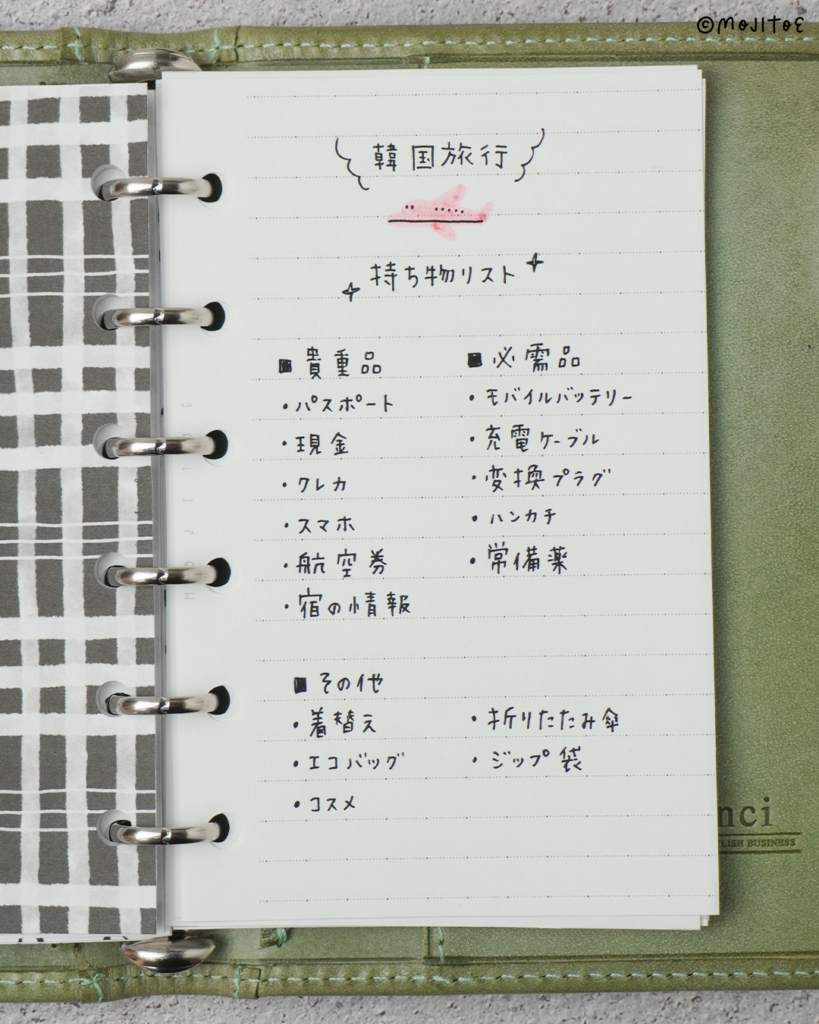 ©MOJITOE
韓国旅行
持ち物リスト
■貴重品
・パスポート
・現金
・クレカ
・スマホ
・航空券
・宿の情報
■必需品
・モバイルバッテリー
・充電ケーブル
・変換プラグ
・ハンカチ
・常備薬
■その他
・着替え
・エコバッグ
・コスメ
・折りたたみ傘
・ジップ袋
nci
LISH BUSINESS